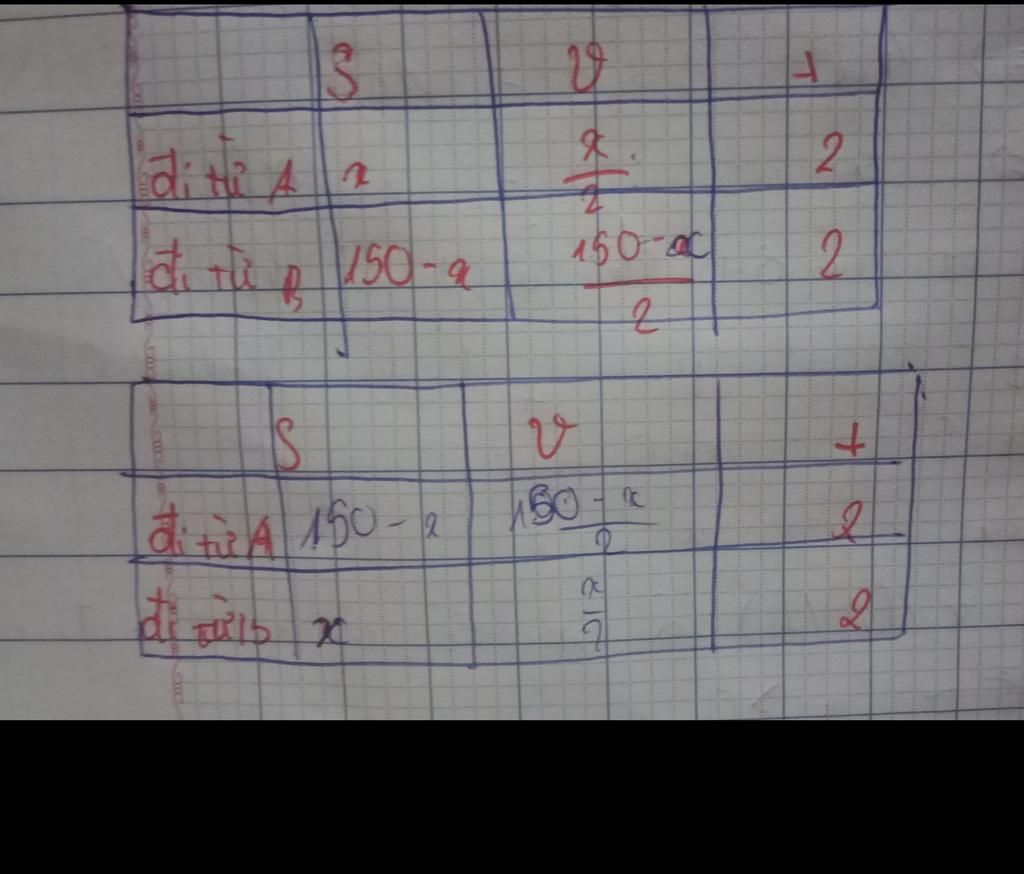 S v t
đi từ A x x/2 2
đi từ B 150-x 150-x/2 2
S v t
đi từ A 150-x 150-x/2 2
đi từ b x x/2 2